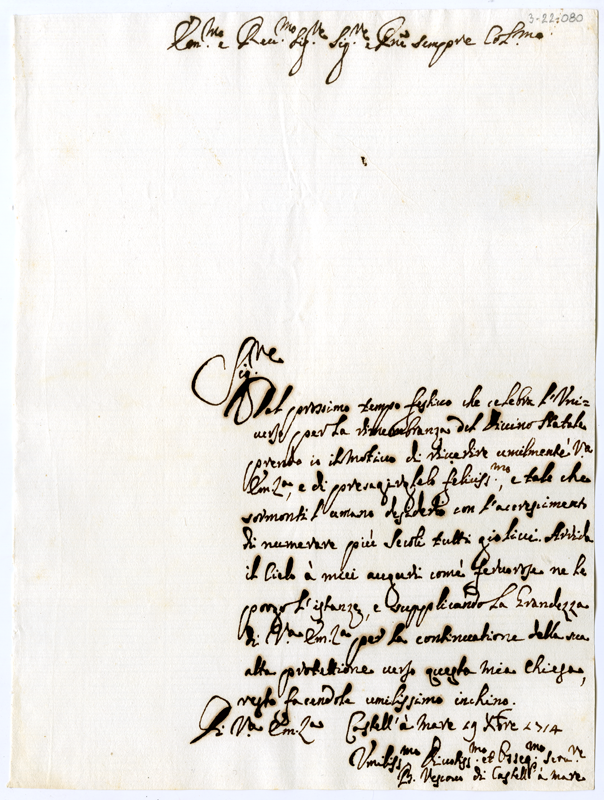 3-22-080
Em.mo e Reu.mo Sig.re Sig.re e Pne sempre Col.mo
Sig.re
Dal prossimo tempo festiuo che celebra l'Uni=
uerso per la rimembranza del Diuino Natale
prendo io il motiuo di riuerire umilmente V.a
Em.za, e di presagirglelo feliciss.mo, e tale che
sormonti l'umano desiderio con l'accrescimento
di numerare più secoli tutti gioliui. Arrida
il Cielo à miei augurij com'è feruorose ne le
porgo l'istanze, e supplicando la Grandezza
di V.a Em.za per la continuatione della sua
alta protettione uerso questa mia Chiesa,
resto facendole umilissimo inchino.
Di V.a Em.za Castell'à mare 19 Xbre 1714
Umiliss.mo Diuotiss.mo et Osseq.mo seru.re
Vescouo di Castell'à mare